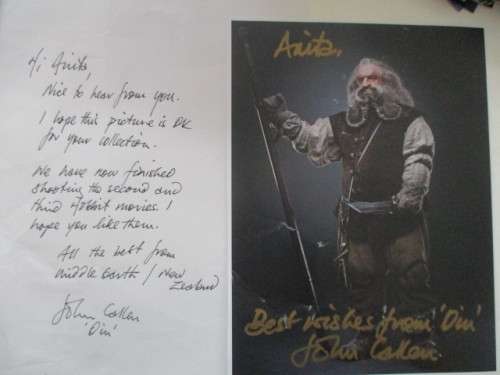 Hi Anita,
Nice to hear from you.
I hope this picture is OK
for your collection.
We have now finished
shooting the second and
third Hobbit movies. I
hope you like them.
All the best from
Middle Earth / New
Zealand
John Callen
'Oin'
Anita,
Best wishes from 'Oin'
John Callen.